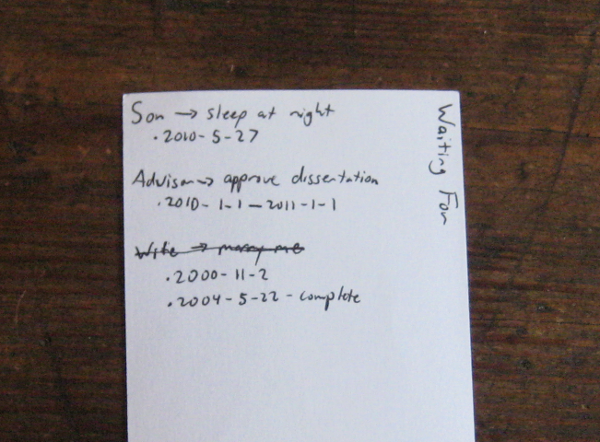 Son → sleep at night
· 2010-5-27
Advisor → approve dissertation
· 2010-1-1 — 2011-1-1
Wife → marry me
· 2000-11-2
· 2004-5-22 - complete
Waiting For